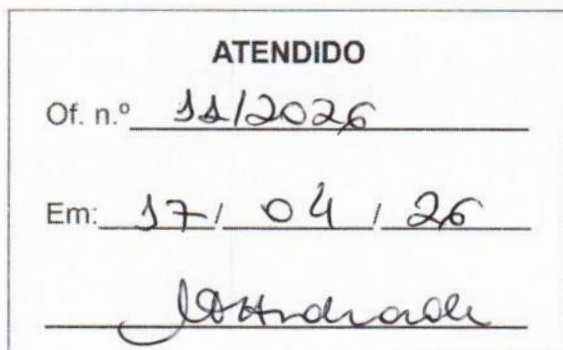 ATENDIDO
Of. n.º 11/2026
Em: 17/ 04 / 26